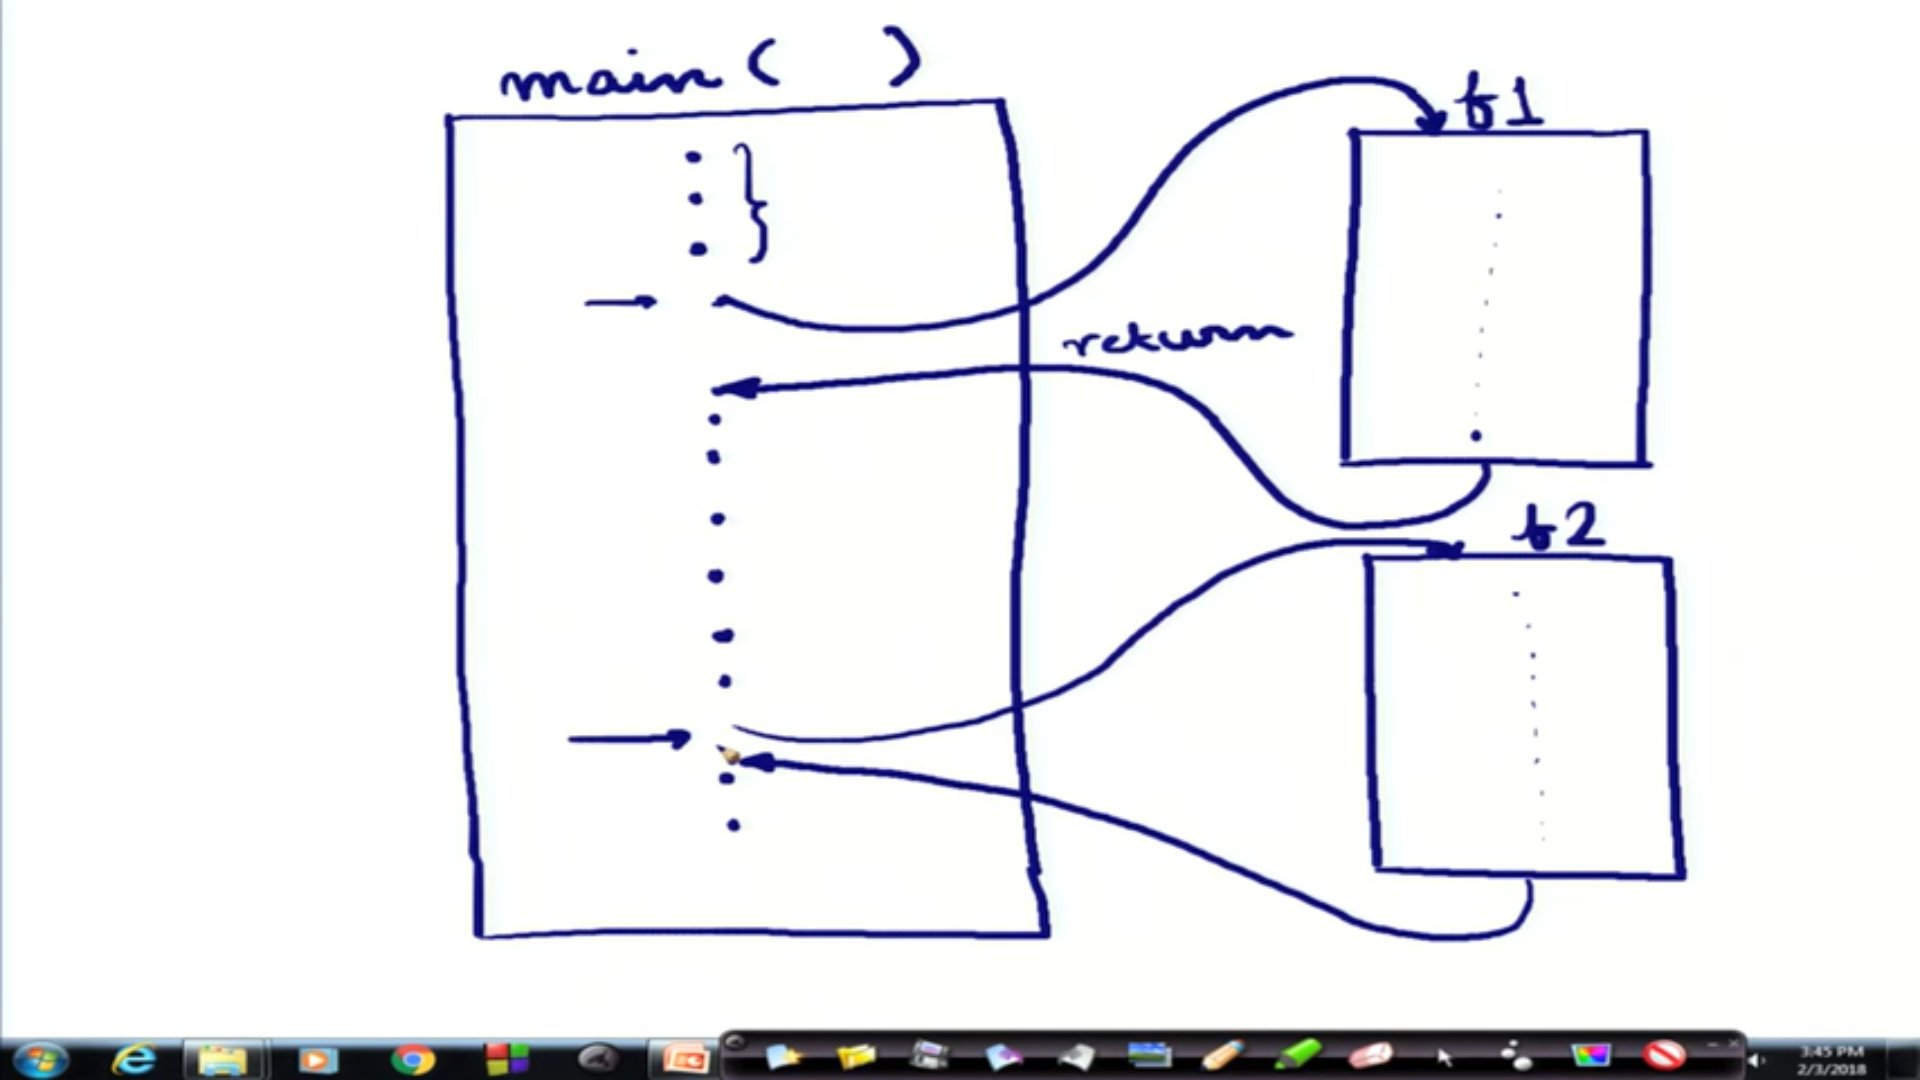 main( )
f1
return
f2
3:45 PM
2/3/2018